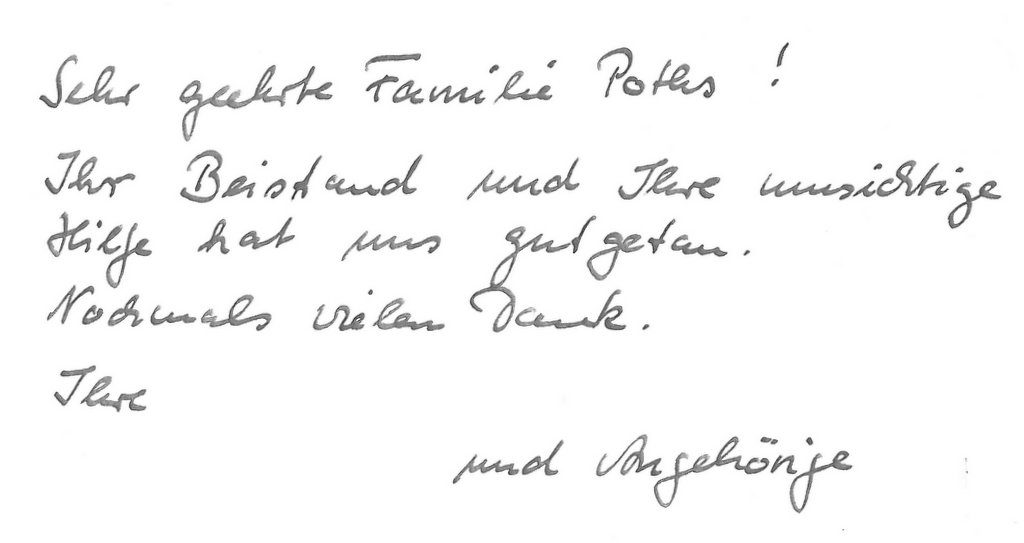 Sehr geehrte Familie Poths !
Ihr Beistand und Ihre umsichtige
Hilfe hat uns gutgetan.
Nochmals vielen Dank.
Ihre
und Angehörige